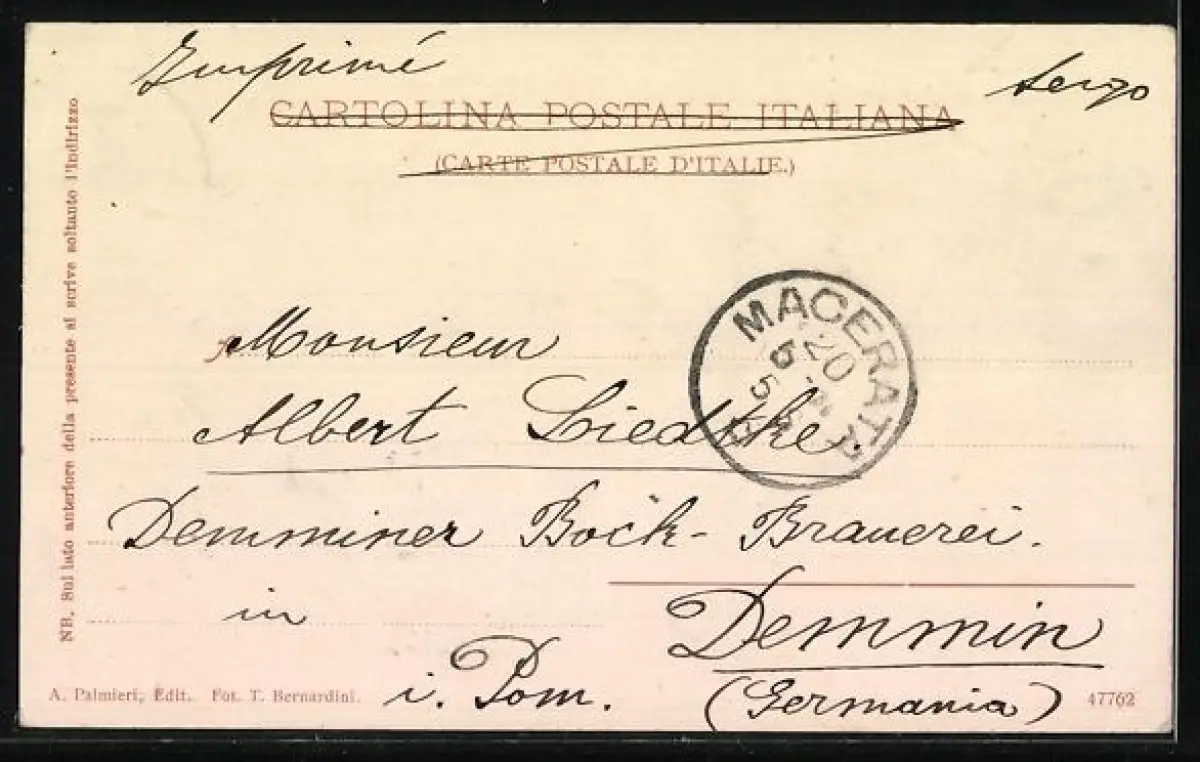 Imprimé
CARTOLINA POSTALE ITALIANA
(CARTE POSTALE D'ITALIE.)
NB. Sul lato anteriore della presente si scrive soltanto l'indirizzo
MACERATA
20
5
5
Monsieur
Albert Liedtke.
Demminer Bock-Brauerei.
in Demmin
i. Pom. (Germania)
A. Palmieri, Edit. Fot. T. Bernardini.
47762